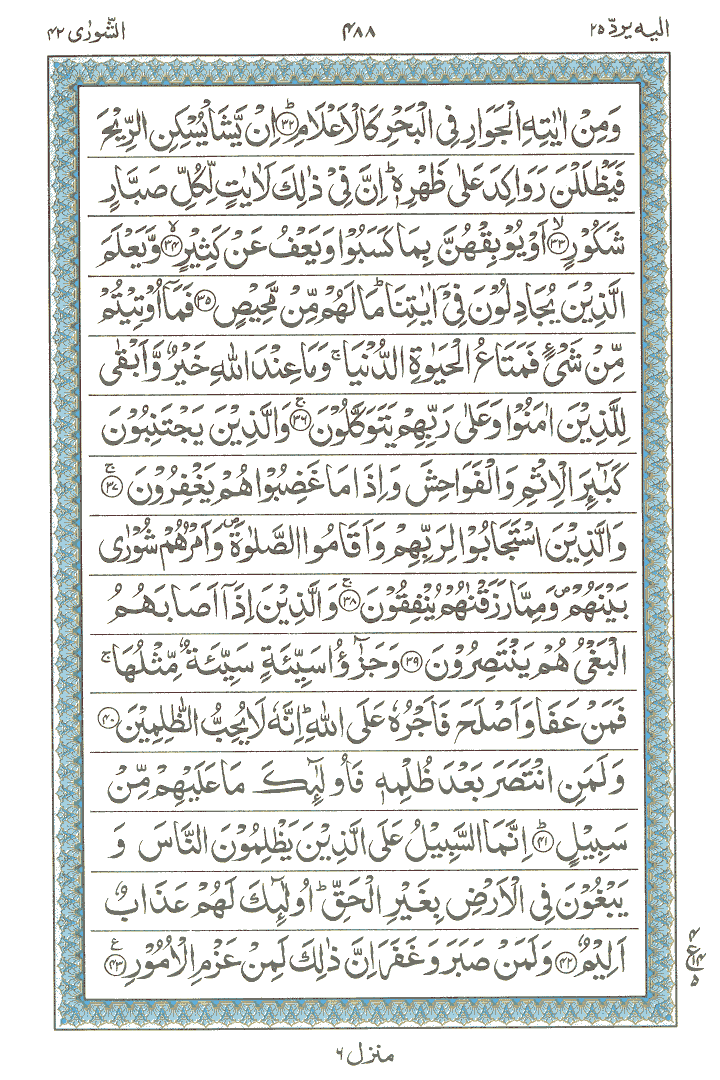 الیه یردّ ۲۵ ۴۸۸ الشّورٰی ۴۲
وَمِنْ اٰیٰتِهِ الْجَوَارِ فِی الْبَحْرِ كَالْاَعْلَامِؕ﴿۳۲﴾ اِنْ یَّشَاْ یُسْكِنِ الرِّیْحَ
فَیَظْلَلْنَ رَوَاكِدَ عَلٰی ظَهْرِهٖؕ اِنَّ فِیْ ذٰلِكَ لَاٰیٰتٍ لِّكُلِّ صَبَّارٍ
شَكُوْرٍۙ﴿۳۳﴾ اَوْ یُوْبِقْهُنَّ بِمَا كَسَبُوْا وَیَعْفُ عَنْ كَثِیْرٍؗۙ﴿۳۴﴾ وَّیَعْلَمَ
الَّذِیْنَ یُجَادِلُوْنَ فِیْۤ اٰیٰتِنَاؕ مَا لَهُمْ مِّنْ مَّحِیْصٍ﴿۳۵﴾ فَمَاۤ اُوْتِیْتُمْ
مِّنْ شَیْءٍ فَمَتَاعُ الْحَیٰوةِ الدُّنْیَاۚ وَمَا عِنْدَ اللهِ خَیْرٌ وَّاَبْقٰی
لِلَّذِیْنَ اٰمَنُوْا وَعَلٰی رَبِّهِمْ یَتَوَكَّلُوْنَۚ﴿۳۶﴾ وَالَّذِیْنَ یَجْتَنِبُوْنَ
كَبٰٓئِرَ الْاِثْمِ وَالْفَوَاحِشَ وَاِذَا مَا غَضِبُوْا هُمْ یَغْفِرُوْنَۚ﴿۳۷﴾
وَالَّذِیْنَ اسْتَجَابُوْا لِرَبِّهِمْ وَاَقَامُوا الصَّلٰوةَ۪ وَاَمْرُهُمْ شُوْرٰی
بَیْنَهُمْ۪ وَمِمَّا رَزَقْنٰهُمْ یُنْفِقُوْنَۚ﴿۳۸﴾ وَالَّذِیْنَ اِذَاۤ اَصَابَهُمُ
الْبَغْیُ هُمْ یَنْتَصِرُوْنَ﴿۳۹﴾ وَجَزٰٓؤُا سَیِّئَةٍ سَیِّئَةٌ مِّثْلُهَاۚ
فَمَنْ عَفَا وَاَصْلَحَ فَاَجْرُهٗ عَلَی اللهِؕ اِنَّهٗ لَا یُحِبُّ الظّٰلِمِیْنَ﴿۴۰﴾
وَلَمَنِ انْتَصَرَ بَعْدَ ظُلْمِهٖ فَاُولٰٓئِكَ مَا عَلَیْهِمْ مِّنْ
سَبِیْلٍؕ﴿۴۱﴾ اِنَّمَا السَّبِیْلُ عَلَی الَّذِیْنَ یَظْلِمُوْنَ النَّاسَ وَ
یَبْغُوْنَ فِی الْاَرْضِ بِغَیْرِ الْحَقِّؕ اُولٰٓئِكَ لَهُمْ عَذَابٌ
اَلِیْمٌ﴿۴۲﴾ وَلَمَنْ صَبَرَ وَغَفَرَ اِنَّ ذٰلِكَ لَمِنْ عَزْمِ الْاُمُوْرِ﴿۴۳﴾ ع
۴
ع ۱۴
۵
منزل ۶